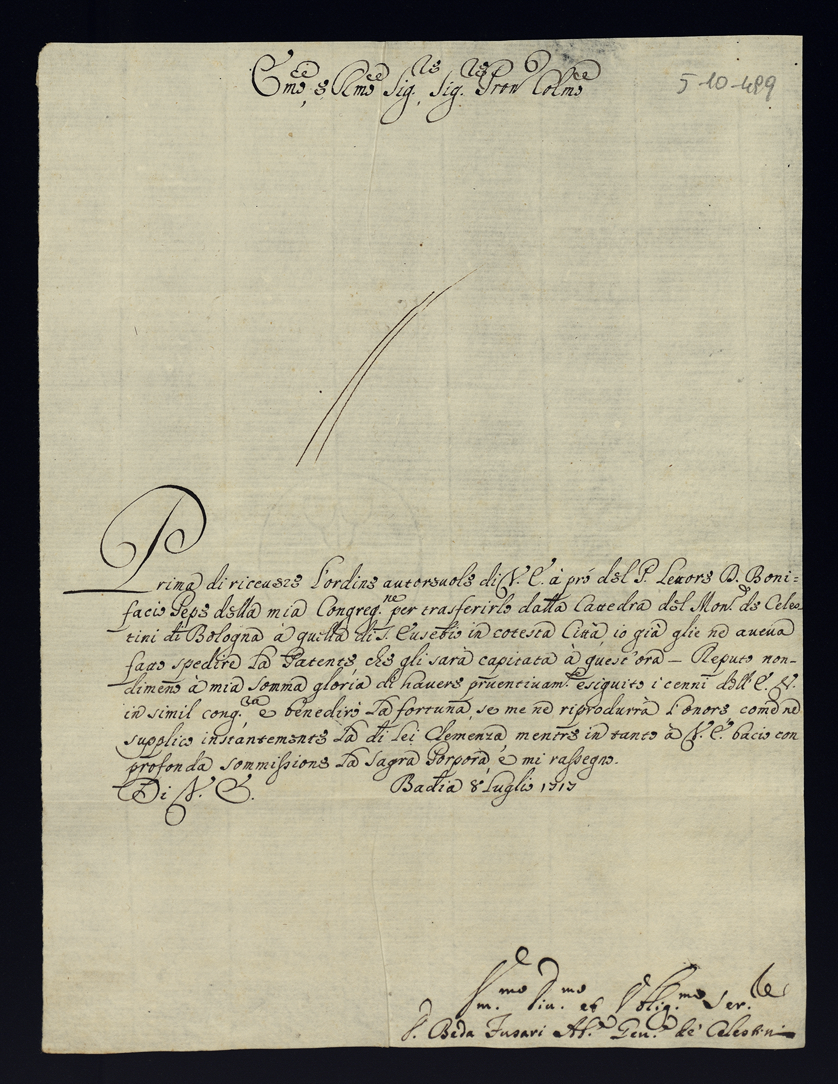 Emo, e Rmo Sig.re Sig.re Pron Colmo
5-10-489
Prima di riceuere l'ordine autoreuole di V. E. à prò del P. Lettore D. Boni=
facio Pepe della mia Congreg.ne per trasferirlo dalla Cattedra del Mon.ro de Celes
tini di Bologna à quella di S. Eusebio in cotesta Città io già glie ne aueua
fatto spedire la Patente, che gli sarà capitata à quest'ora — Reputo non-
dimeno à mia somma gloria di hauere preuentiuam.te esiguito i cenni dell' E. V.
in simil cong.ra e benedirò la fortuna, se me ne riprodurrà l'onore come ne
supplico instantemente la di Lei Clemenza, mentre in tanto à V. E. bacio con
profonda sommissione la Sagra Porpora, e mi rassegno.
Di V. E. Badia 8 Luglio 1717
Vmo Diu.mo et Oblig.mo Ser.re
D. Beda Fusari Ab.e Gen.le de' Celestini